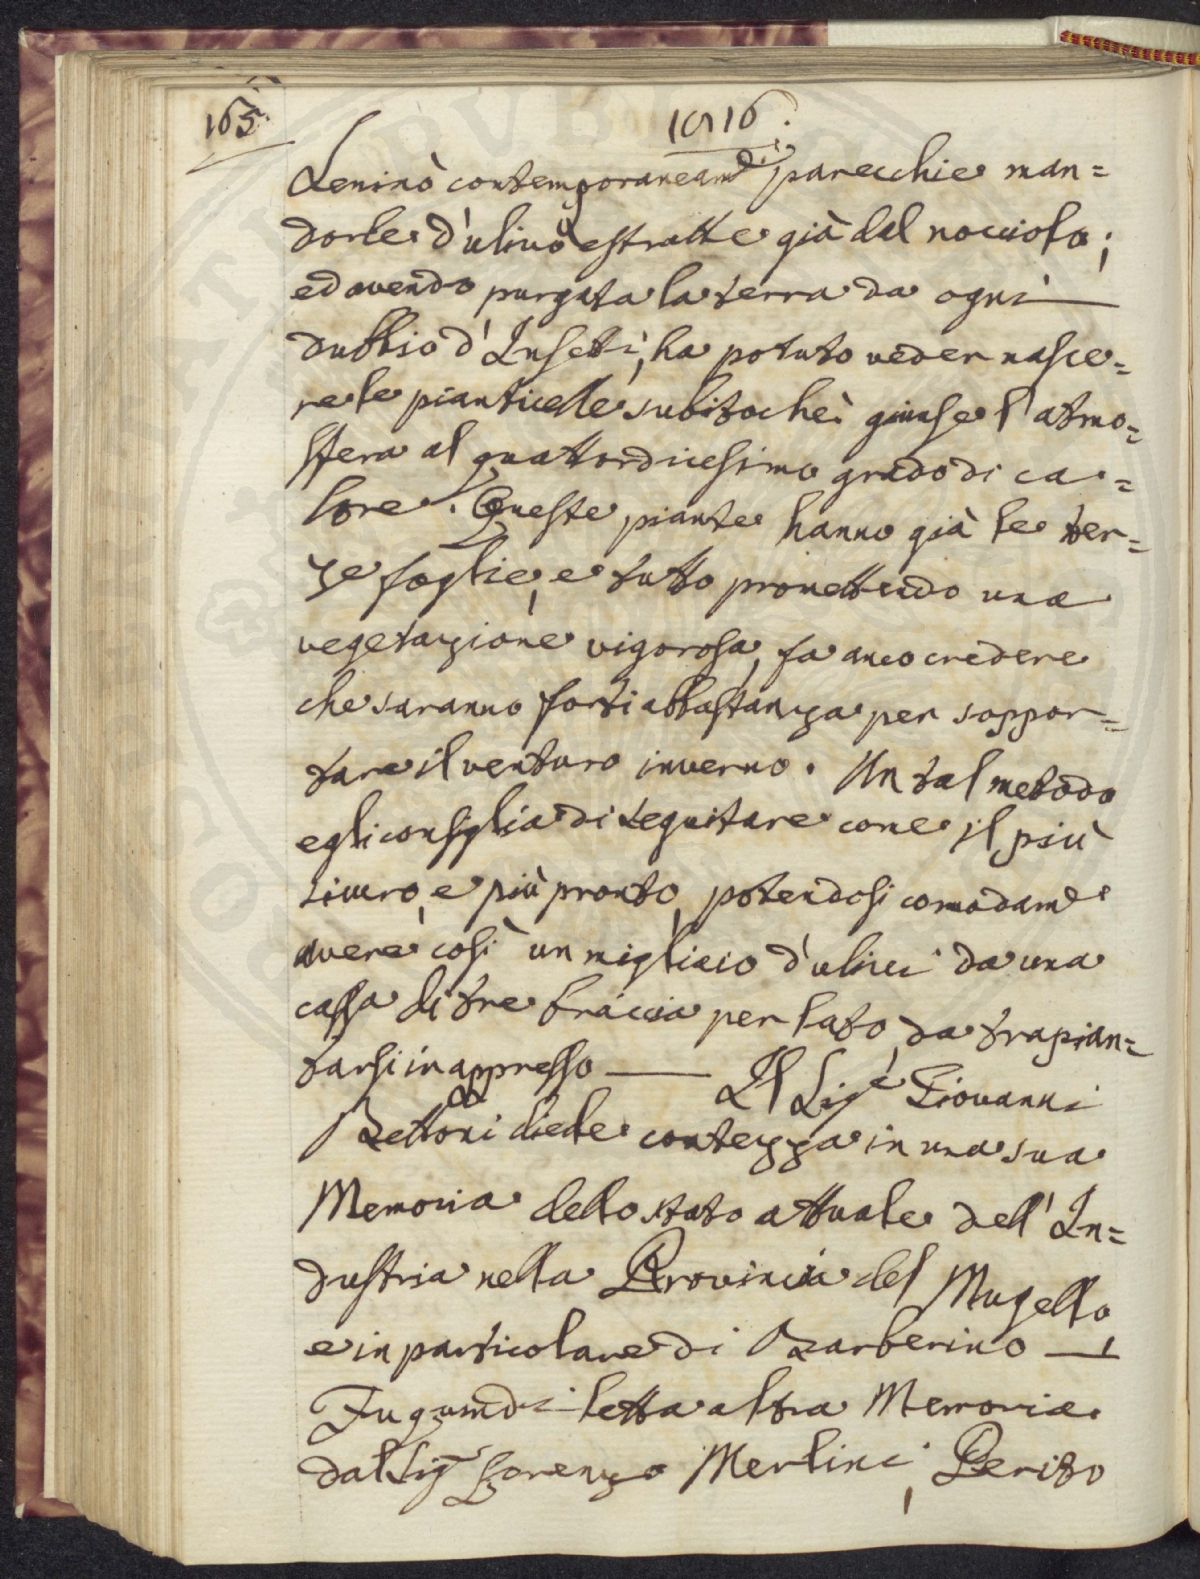 165.
1816.
Seminò contemporaneam.e di parecchie man=
dorle d'ulivo estratte già dal nocciolo;
ed avendo purgata la terra da ogni —
dubbio d'Insetti, ha potuto veder nasce=
re le pianticelle subitochè giunse l'atmo=
sfera al quattordicesimo grado di ca=
lore. Queste piante hanno già le ter=
ze foglie, e tutto promettendo una
vegetazione vigorosa, fa anco credere
che saranno forti abbastanza per soppor=
tare il venturo inverno. Un tal metodo
egli consiglia di seguitare come il più
sicuro, e più pronto, potendosi comodam.e
avere così un migliaio d'ulivi da una
cassa di tre braccia per lato, da trapian=
tarsi in appresso — Il Sig.e Giovanni
Bettoni diede contezza in una sua
Memoria dello stato attuale dell'In=
dustria nella Provincia del Mugello
e in particolare di Barberino —
Fu quindi letta altra Memoria
dal Sig. Lorenzo Merlini, Perito